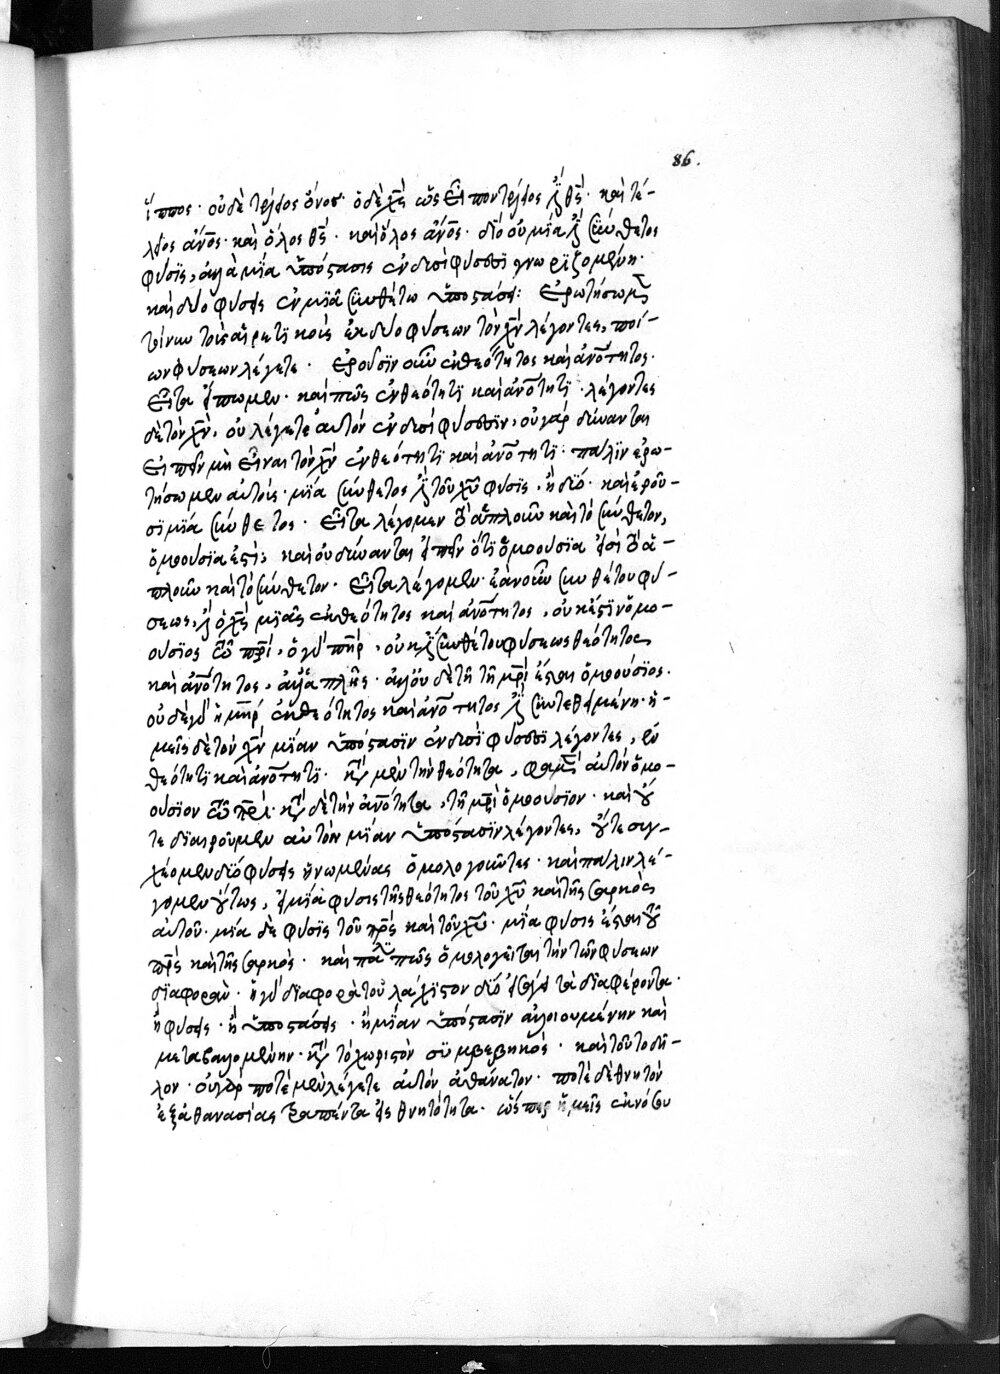 86.
ἵππος· οὐδὲ τέλειος ὄνος· ὁ δὲ χ̅ς̅ ὡς εἴπον τέλειος ἐστὶ θ̅ς̅· καὶ τέ-
λειος ἄν̅ο̅ς̅· καὶ ὅλος θ̅ς̅· καὶ ὅλος ἄν̅ο̅ς̅· διὸ οὐ μία ἐστὶ σύνθετος
φύσις, ἀλλὰ μία ὑπόστασις ἐν δυσὶ φύσεσι γνωριζομένη·
καὶ δύο φύσεις ἐν μιᾷ συνθέτω ὑποστάσει: Ἐρωτήσωμεν
τοίνυν τοὺς αἱρετικοὺς ἐκ δύο φύσεων τὸν χ̅ν̅ λέγοντες, ποί-
ων φύσεων λέγετε· ἐροῦσιν οὖν ἐκ θεότητος καὶ ἀν̅ο̅τητος·
εἶτα εἴπωμεν· καὶ πῶς ἐν θεότητι καὶ ἀν̅ο̅τητι λέγοντες
δὲ τὸν χ̅ν̅, οὐ λέγετε αὐτὸν ἐν δυσὶ φύσεσιν, οὐ γὰρ δύνανται
εἰπεῖν μὴ εἶναι τὸν χ̅ν̅ ἐν θεότητι καὶ ἀν̅ο̅τητι· πάλιν ἐρω-
τήσωμεν αὐτοὺς· μία σύνθετος ἐστὶ τοῦ χ̅υ̅ φύσις, ἢ δύο· καὶ ἐροῦ-
σι μία σύνθετος· εἶτα λέγομεν τὸ ἁπλοῦν καὶ τὸ σύνθετον,
ὁμοούσια ἐστί; καὶ οὐ δύνανται εἰπεῖν ὅτι ὁμοούσια εἰσὶ τὸ ἁ-
πλοῦν καὶ τὸ σύνθετον· εἶτα λέγομεν· ἐὰν οὖν συνθέτου φύ-
σεως, ἐστὶ ὁ χ̅ς̅ μιᾶς ἐκ θεότητος καὶ ἀν̅ο̅τητος, οὐκ ἔστιν ὁμο-
ούσιος τῶ π̅ρ̅ί, ὁ γὰρ π̅η̅ρ̅, οὐκ ἐστὶ συνθέτου φύσεως θεότητος
καὶ ἀν̅ο̅τητος, ἀλλ' ἁπλῆς· ἀλλ' οὐδὲ τῆ τῆ μ̅ρ̅ί ἔσται ὁμοούσιος·
οὐδὲ γὰρ ἡ μ̅η̅ρ̅ ἐκ θεότητος καὶ ἀν̅ο̅τητος ἐστὶ συντεθειμένη· ἡ-
μεῖς δὲ τὸν χ̅ν̅ μίαν ὑπόστασιν ἐν δυσὶ φύσεσι λέγοντες, ἐν
θεότητι καὶ ἀν̅ο̅τητι· κατὰ μὲν τὴν θεότητα, φαμὲν αὐτὸν ὁμο-
ούσιον τῶ π̅ρ̅ί· κατὰ δὲ τὴν ἀν̅ο̅τητα, τῆ μ̅ρ̅ί ὁμοούσιον· καὶ οὔ
τε διαιροῦμεν αὐτὸν μίαν ὑπόστασιν λέγοντες, οὔτε συγ-
χέομεν δύο φύσεις ἡνωμένας ὁμολογοῦντες· καὶ πάλιν λέ-
γομεν οὕτως, εἰ μία φύσις τῆς θεότητος τοῦ χ̅υ̅ καὶ τῆς σαρκὸς
αὐτοῦ· μία δὲ φύσις τοῦ π̅ρ̅ς̅ καὶ τοῦ χ̅υ̅· μία φύσις ἔσται τοῦ
π̅ρ̅ς̅ καὶ τῆς σαρκός· καὶ πάλιν πῶς ὁμολογεῖται τὴν τῶν φύσεων
διαφοράν· ἡ γὰρ διαφορὰ τοὐλάχιστον δύο εἰσάγει τὰ διαφέροντα·
ἢ φύσεις· ἢ ὑποστάσεις· ἢ μίαν ὑπόστασιν ἀλλοιουμένην καὶ
μεταβαλλομένην· κατὰ τὸ χωριστὸν συμβεβηκός· καὶ τοῦτο δῆ-
λον· οὐ γὰρ ποτὲ μὲν λέγετε αὐτὸν ἀθάνατον· ποτὲ δὲ θνητὸν
ἐξ ἀθανασίας τραπέντα εἰς θνητότητα· ὥσπερ ἡμεῖς ἐκ νότου